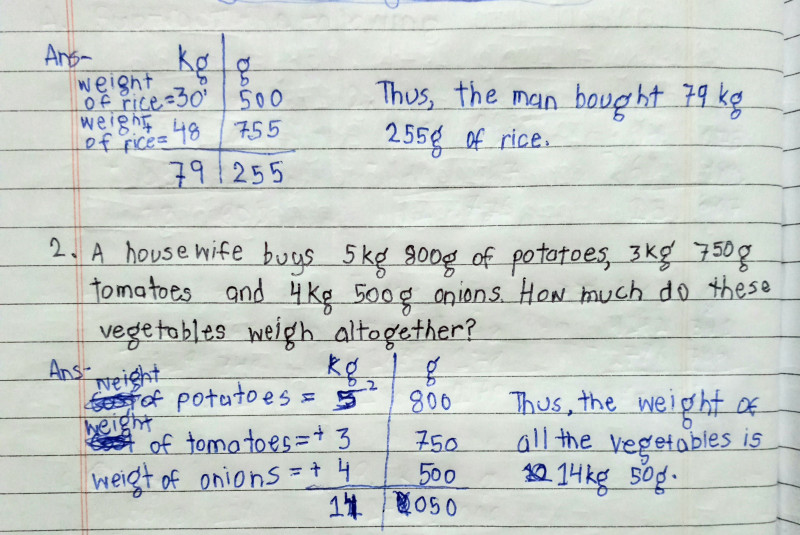 Ans- kg | g
weight of rice = 30' | 500
weight of rice = 48 | 755
79 | 255
Thus, the man bought 79 kg
255g of rice.
2. A housewife buys 5kg 800g of potatoes, 3kg 750g
tomatoes and 4kg 500g onions. How much do these
vegetables weigh altogether?
Ans- kg | g
weight of potatoes = 5 2 | 800
weight of tomatoes = + 3 | 750
weigt of onions = + 4 | 500
14 | 050
Thus, the weight of
all the vegetables is
14kg 50g.